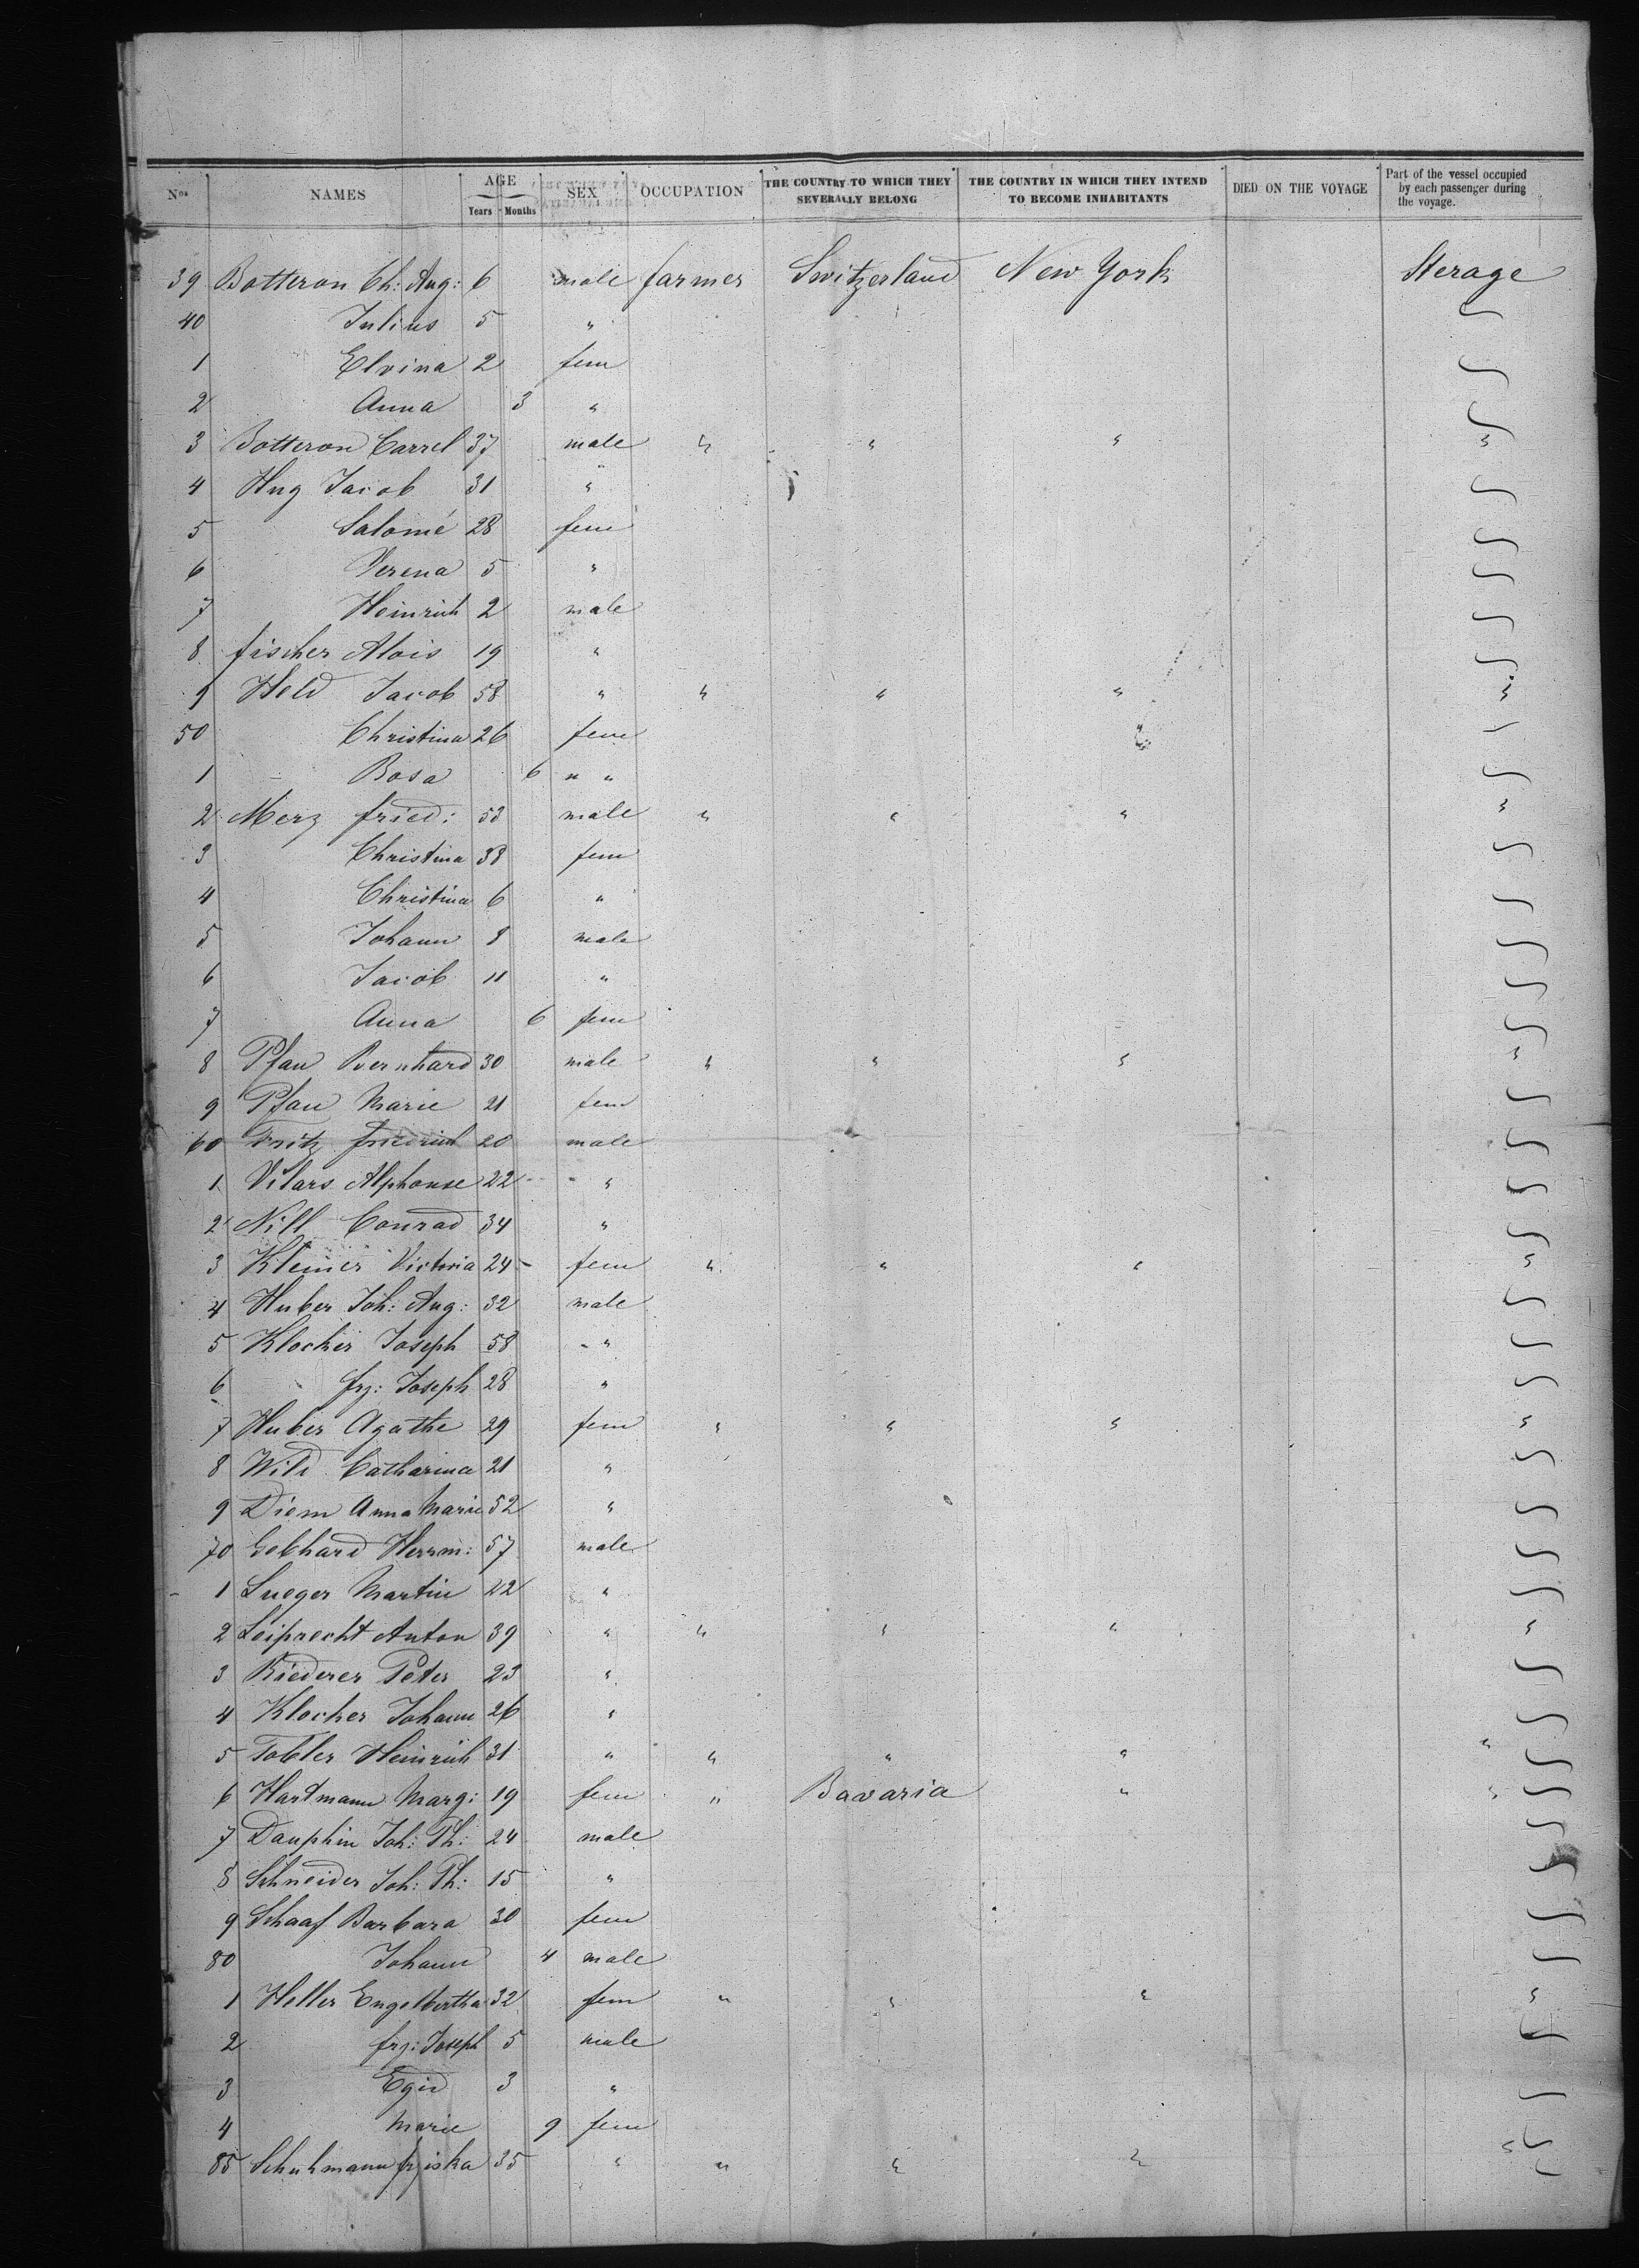 Nos NAMES AGE Years Months SEX OCCUPATION THE COUNTRY TO WHICH THEY SEVERALLY BELONG THE COUNTRY IN WHICH THEY INTEND TO BECOME INHABITANTS DIED ON THE VOYAGE Part of the vessel occupied by each passenger during the voyage.
39 Botteron Ch: Aug: 6 male farmer Switzerland New York Sterage
40 Julius 5 "
1 Elvina 2 fem
2 Anna 3 "
3 Botteron Carrel 37 male " " " "
4 Hug Jacob 31 "
5 Salomé 28 fem
6 Verena 5 "
7 Heinrich 2 male
8 fischer Alois 19 "
9 Held Jacob 58 " " " " "
50 Christina 26 fem
1 Rosa 6 " "
2 Merz fried: 53 male " " " "
3 Christina 38 fem
4 Christina 6 "
5 Johann 8 male
6 Jacob 11 "
7 Anna 6 fem
8 Pfau Bernhard 30 male " " " "
9 Pfau Marie 21 fem
60 Fritz friedrich 20 male
1 Vilars Alphonse 22 "
2 Nill Conrad 34 "
3 Kleiner Victoria 24 fem " " " "
4 Huber Joh: Aug: 32 male
5 Klocker Joseph 58 "
6 frz: Joseph 28 "
7 Huber Agathe 29 fem " " " "
8 Wild Catharina 21 "
9 Diem Anna Marie 52 "
70 Gebhard Herrm: 57 male
1 Lueger Martin 22 "
2 Leiprecht Anton 39 " " " " "
3 Riederer Peter 23 "
4 Klocker Johann 26 "
5 Tobler Heinrich 31 " " " " "
6 Hartmann Marg: 19 fem " Bavaria " "
7 Dauphin Joh: Ph: 24 male
8 Schneider Joh: Ph: 15 "
9 Schaaf Barbara 30 fem
80 Johann 4 male
1 Heller Engelbertha 32 fem " " " "
2 frz: Joseph 5 male
3 Egid 3 "
4 Marie 9 fem
85 Schuhmann frziska 35 " " " " "